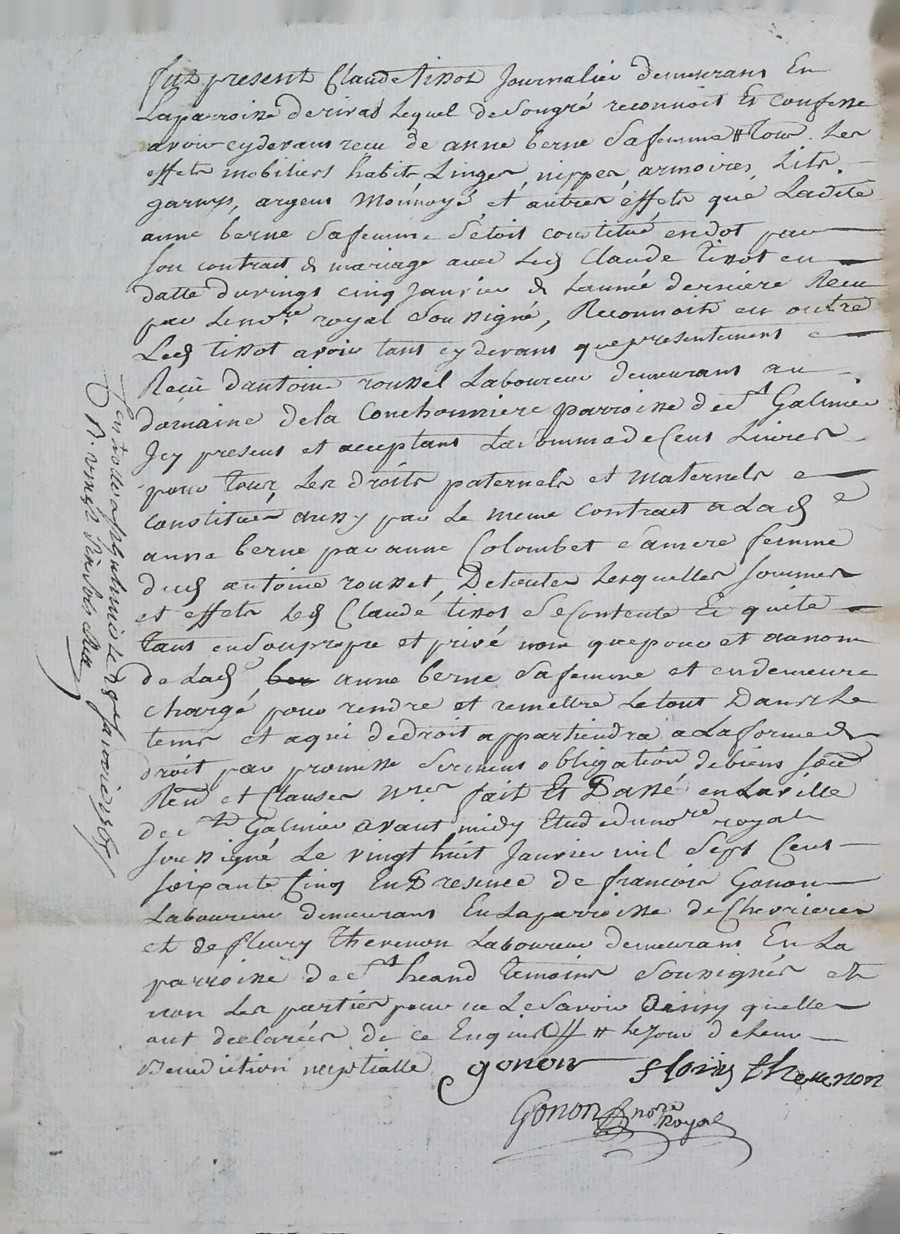 fut present Claude tissot Journalier demeurant En
Laparroisse derivas Lequel desongré reconnoit Et confesse
avoir cydevant recu de anne berne safemme # tous Les
effets mobiliers habits Linges, nippes, armoires, Lits
garnys, argent Monnoyé et autres effets que Ladite
anne berne safemme s'etoit constitué endot par
son contrat de mariage avec Led Claude tissot en
datte duvingt cinq Janvier de Lannée derniere Recu
par Lenore royal soussigné, Reconnoit en outre
Led tissot avoir tant cydevant quepresentement
Recu dantoine roussel Laboureur demeurant au
domaine dela Conchonniere parroisse de St Galmier
Icy present et acceptant Lasomme de Cent Livres
pour tous Les droits paternels et maternels
constitués aussy par Le meme contrat a Lad
anne berne par anne Colombet samere femme
dud antoine roussel, Detoutes Lesquelles sommes
et effets Led Claude tissot se Contente Et quite
tant ensonpropre et privé nom quepour et aunom
de Lad ber anne berne safemme et endemeure
chargé pour rendre et remettre Letout Dans Le
tems et aqui dedroit appartiendra a Laforme de
droit par promesse serment obligation debiens
Ren et Clauses fait Et Passé en Laville
de St Galmier avant midy Etude dunore royal
soussigné Le vingt huit Janvier mil sept Cent
soixante Cinq En Presence de francois Gonon
Laboureur demeurant En Laparroisse de Chevrieres
et de fleury thevenon Laboureur demeurant En La
parroisse de St heand temoins soussignés et
non Les parties pour ne Le savoir Ainsy quelles
ont declarées de ce Enquises # Lejour de Leur
Benediction nuptialle
gonon floiry thevenon
Gonon nore
Royal
Controllé a St Galmier Le Janvier 1765
R. vingt six sols